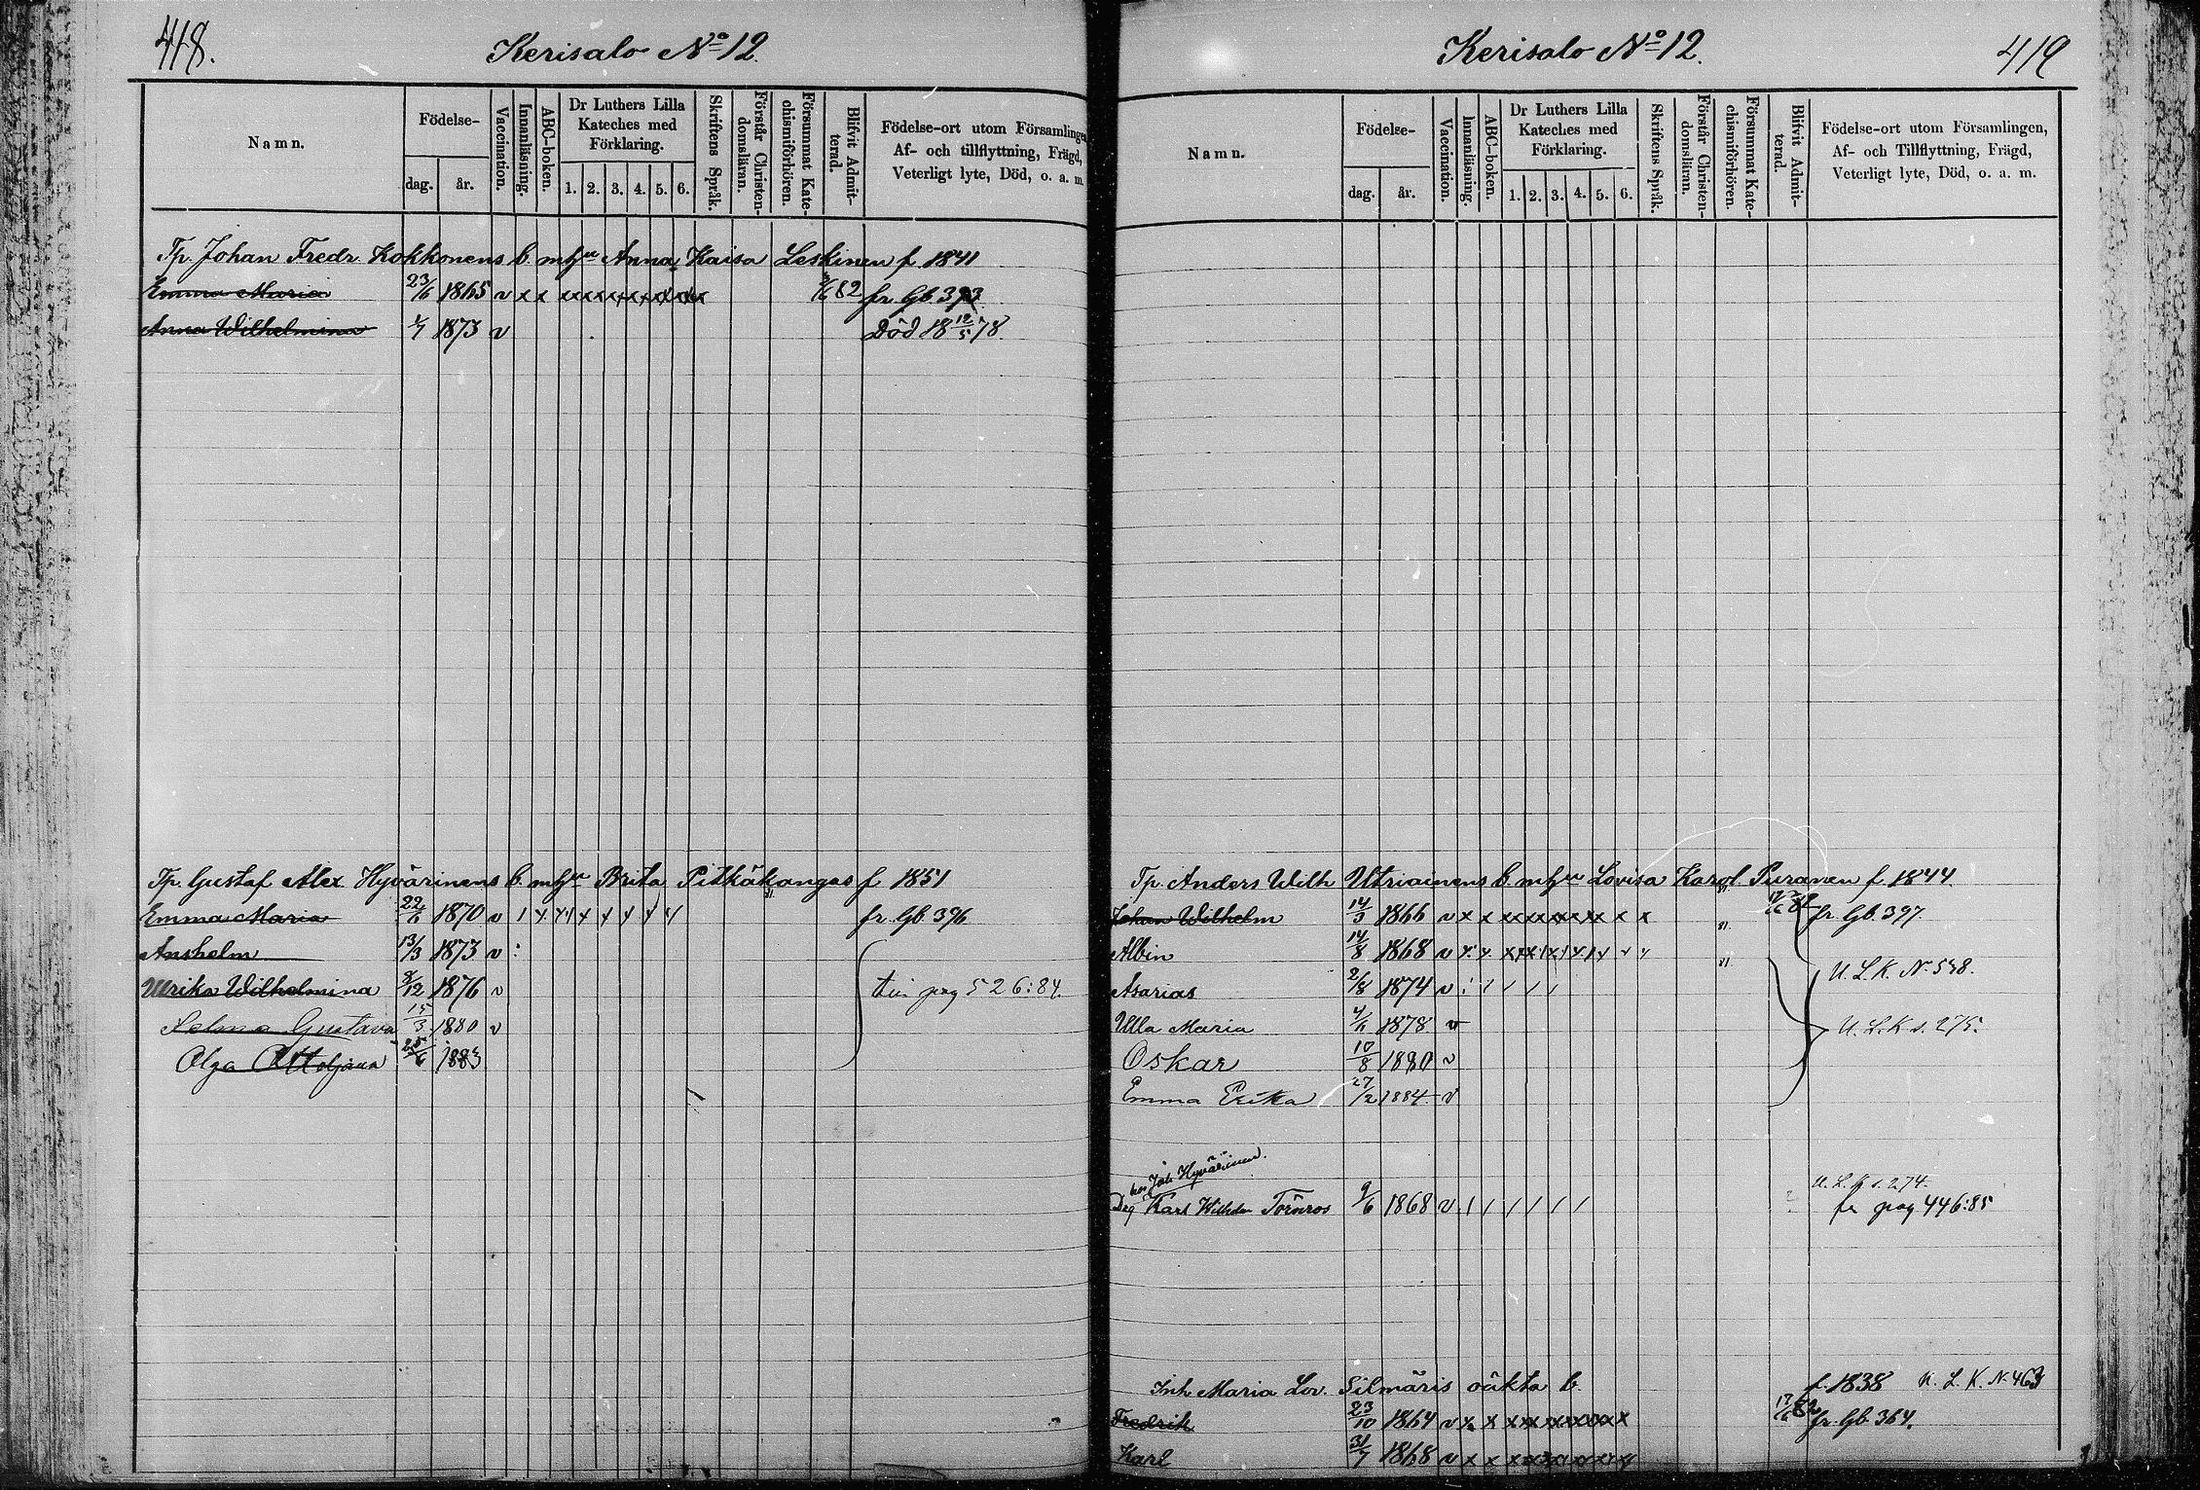 418.
Kerisalo No 12.
Namn.
Födelse-
dag.
år.
Vaccination.
Innanläsning.
ABC-boken.
Dr Luthers Lilla
Kateches med
Förklaring.
1. 2. 3. 4. 5. 6.
Skriftens Språk.
Förstår Christen-
domsläran.
Försummat Kate-
chismiförhören.
Blifvit Admit-
terad.
Födelse-ort utom Församlingen,
Af- och tillflyttning, Frägd,
Veterligt lyte, Död, o. a. m.
Tp. Johan Fredr. Kokkonens b. m hu Anna Kaisa Leskinen f. 1841
Emma Maria 23/6 1865 v x x x x x x x x x x x x 82 fr. Gb. 393
Anna Wilhelmina 1873 v Död 18 12/5 78.
Tp. Gustaf Alex Hyvärinens b. m hu Brita Pitkäkangas f 1851
Emma Maria 22/6 1870 v fr. Gb. 396
Anshelm 13/3 1873 v
Ulrika Wilhelmina 8/12 1876 v
pag 526:84.
Selma Gustava 15/3 1880 v
Olga 1883
419
Kerisalo No 12.
Namn.
Födelse-
dag.
år.
Vaccination.
Innanläsning.
ABC-boken.
Dr Luthers Lilla
Kateches med
Förklaring.
1. 2. 3. 4. 5. 6.
Skriftens Språk.
Förstår Christen-
domsläran.
Försummat Kate-
chismiförhören.
Blifvit Admit-
terad.
Födelse-ort utom Församlingen,
Af- och Tillflyttning, Frägd,
Veterligt lyte, Död, o. a. m.
Tp. Anders Wilh Utriainens b. m hu Lovisa Karol. Puranen f. 1844.
Johan Wilhelm 14/3 1866 v x x x x x x x x x x fr. Gb. 397.
Albin 14/8 1868 v
U. L. K. No 538.
Asarias 2/8 1874 v
Ulla Maria 1878 v U. L. K. s. 275.
Oskar 10/8 1880 v
Emma Erika 27/2 1884 v
hos Joh. Hyvärinen.
U. L. K s. 274.
Drg Karl Wilhelm Törnros 9/6 1868 v / / / / / / fr pag 446:85
Inh Maria Lov. Silmäris oäkta b. f. 1838 U. L. K. N. 463
Fredrik 23/10 1864 v x x x x x x x x x 17/6 82 fr. Gb. 364.
Karl 31/7 1868 v x x x x x x x x x